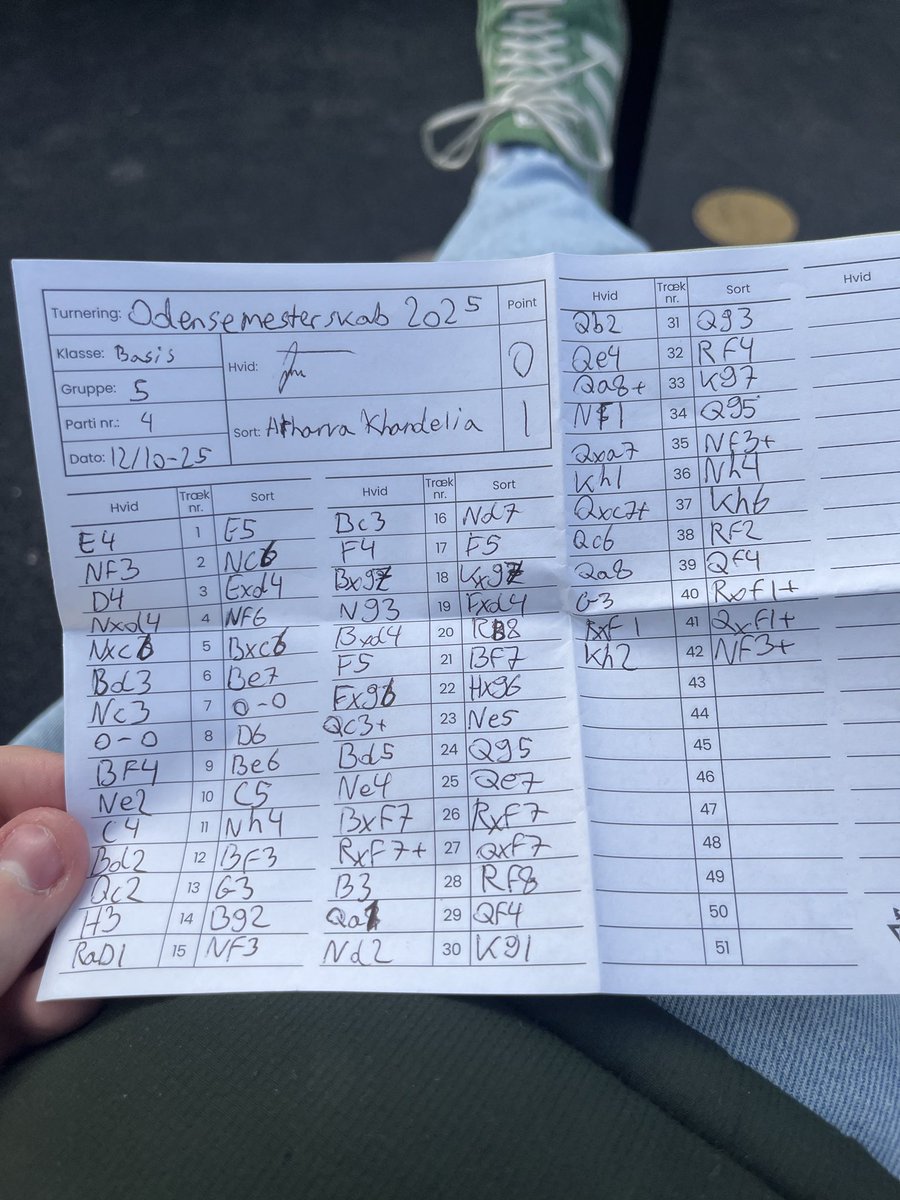 Turnering: Odensemesterskab 2025 Point
Klasse: Basis Hvid: 0
Gruppe: 5
Parti nr.: 4 Sort: Atharva Khandelia 1
Dato: 12/10-25
Hvid Træk nr. Sort
E4 1 E5
NF3 2 NC6
D4 3 Exd4
Nxd4 4 NF6
Nxc6 5 Bxc6
Bd3 6 Be7
Nc3 7 0-0
0-0 8 D6
BF4 9 Be6
Ne2 10 C5
C4 11 Nh4
Bd2 12 BF3
Qc2 13 G3
H3 14 Bg2
RaD1 15 NF3
Hvid Træk nr. Sort
Bc3 16 Nd7
F4 17 F5
Bxg7 18 Kxg7
Ng3 19 Fxd4
Bxd4 20 RB8
F5 21 BF7
Fxg6 22 Hxg6
Qc3+ 23 Ne5
Bd5 24 Qg5
Ne4 25 Qe7
BxF7 26 RxF7
RxF7+ 27 QxF7
B3 28 RF8
Qa1 29 QF4
Nd2 30 Kg1
Hvid Træk nr. Sort
Qb2 31 Qg3
Qe4 32 RF4
Qa8+ 33 Kg7
NF1 34 Qg5
Qxa7 35 Nf3+
Kh1 36 Nh4
Qxc7+ 37 Kh6
Qc6 38 RF2
Qa8 39 QF4
G3 40 Rxf1+
RxF1 41 QxF1+
Kh2 42 NF3+
43
44
45
46
47
48
49
50
51
Hvid